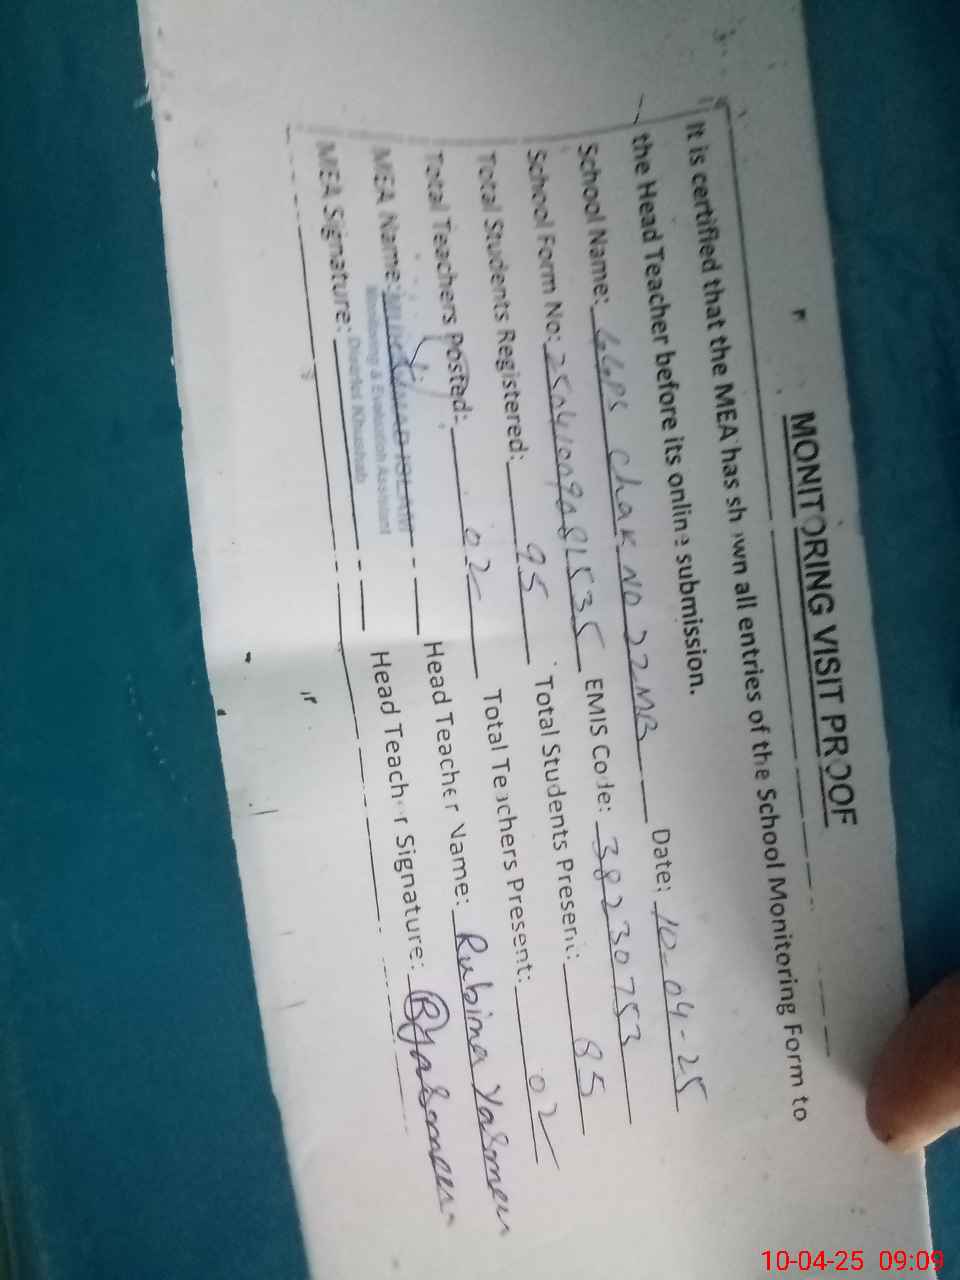 MONITORING VISIT PROOF
It is certified that the MEA has shown all entries of the School Monitoring Form to
the Head Teacher before its online submission.
School Name: GGPS Chak NO 22MB Date: 10-04-25
School Form No: EMIS Code: 38230753
Total Students Registered: 95 Total Students Present: 85
Total Teachers Posted: 02 Total Teachers Present: 02
MEA Name: Head Teacher Name: Rubina Yasmeen
Monitoring & Evaluation Assistant
MEA Signature: Head Teacher Signature: RYasmeen
District Khushab
10-04-25 09:09